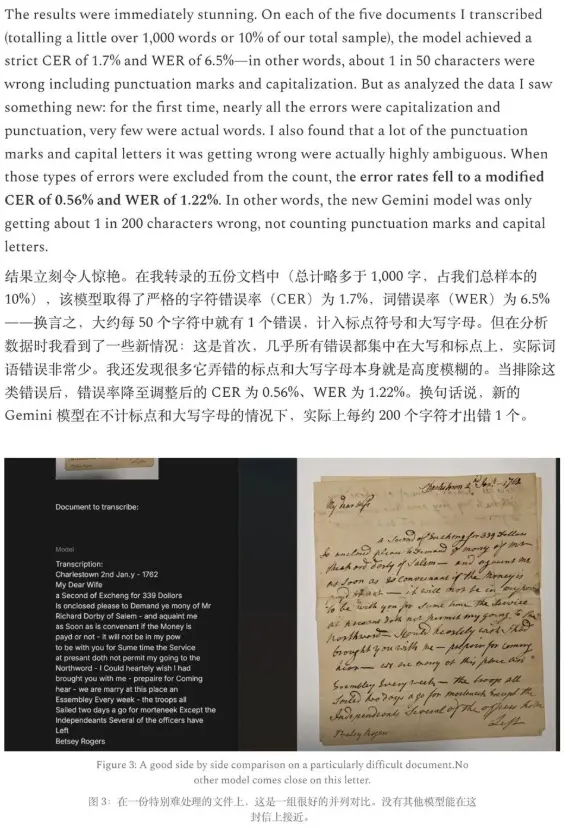 The results were immediately stunning. On each of the five documents I transcribed
(totalling a little over 1,000 words or 10% of our total sample), the model achieved a
strict CER of 1.7% and WER of 6.5%—in other words, about 1 in 50 characters were
wrong including punctuation marks and capitalization. But as analyzed the data I saw
something new: for the first time, nearly all the errors were capitalization and
punctuation, very few were actual words. I also found that a lot of the punctuation
marks and capital letters it was getting wrong were actually highly ambiguous. When
those types of errors were excluded from the count, the error rates fell to a modified
CER of 0.56% and WER of 1.22%. In other words, the new Gemini model was only
getting about 1 in 200 characters wrong, not counting punctuation marks and capital
letters.
结果立刻令人惊艳。在我转录的五份文档中（总计略多于 1,000 字，占我们总样本的
10%），该模型取得了严格的字符错误率（CER）为 1.7%，词错误率（WER）为 6.5%
——换言之，大约每 50 个字符中就有 1 个错误，计入标点符号和大写字母。但在分析
数据时我看到了一些新情况：这是首次，几乎所有错误都集中在大写和标点上，实际词
语错误非常少。我还发现很多它弄错的标点和大写字母本身就是高度模糊的。当排除这
类错误后，错误率降至调整后的 CER 为 0.56%、WER 为 1.22%。换句话说，新的
Gemini 模型在不计标点和大写字母的情况下，实际上每约 200 个字符才出错 1 个。
Document to transcribe:
Model
Transcription:
Charlestown 2nd Jan.y - 1762
My Dear Wife
a Second of Excheng for 339 Dollors
Is enclosed please to Demand ye mony of Mr
Richard Dorby of Salem - and aquaint me
as Soon as convenant if the Money is
payd or not - it will not be in my pow
to be with you for Sume time the Service
at presant doth not permit my going to the
Northword - I Could heartely wish I had
brought you with me - prepair for Coming
hear - we are marry at this place an
Essembley Every week - the troops all
Sailed two days a go for morteneek Except the
Independeants Several of the officers have
Left
Betsey Rogers
Charlestown 2d Jany - 1762
My Dear Wife
a Second of Excheng for 339 Dollors
Is enclosed please to Demand mony of Mr
Richard Dorby of Salem - and aquaint me
as Soon as convenant if the Money is
payd or not - it will not be in my
to be with you for Sume time the Service
at presant doth not permit my going to the
Northword - Could heartely wish had
brought you with me - prepair for Coming
hear - we are at this place an
Essembley Every week - the troops all
Sailed two days a go for morteneek Except the
Independeants Several of the officers have
Left
Betsey Rogers
Figure 3: A good side by side comparison on a particularly difficult document.No
other model comes close on this letter.
图 3：在一份特别难处理的文件上，这是一组很好的并列对比。没有其他模型能在这
封信上接近。